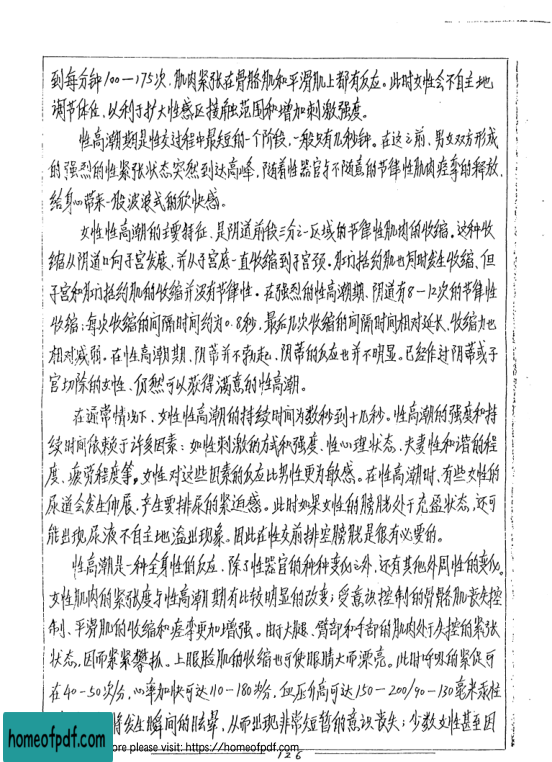 到每分钟100—175次.肌肉紧张在骨骼肌和平滑肌上都有反应。此时女性会不自主地
调节体位、以利于扩大性感区接触范围和增加刺激强度。
性高潮期是性交过程中最短的一个阶段,一般只有几秒钟。在这之前、男女双方形成
的强烈的性紧张状态突然到达高峰.随着性器官与不随意的节律性肌肉痉挛的释放,
给身心带来一股波浪式的欣快感。
女性性高潮的主要特征、是阴道前段三分之一区域的节律性肌肉的收缩。这种收
缩从阴道口向子宫发展、并从子宫底一直收缩到子宫颈。肛门括约肌也同时发生收缩、但
子宫和肛门括约肌的收缩并没有节律性。在强烈的性高潮期、阴道有8—12次的节律性
收缩;每次收缩的间隔时间约为0.8秒,最后几次收缩的间隔时间相对延长、收缩力也
相对减弱。在性高潮期、阴蒂并不勃起、阴蒂的反应也并不明显。已经作过阴蒂或子
宫切除的女性、仍然可以获得满意的性高潮。
在通常情况下、女性性高潮的持续时间为数秒到十几秒。性高潮的强度和持
续时间依赖于许多因素:如性刺激的方式和强度、性心理状态、夫妻性和谐的程
度、疲劳程度等。女性对这些因素的反应比男性更为敏感。在性高潮时、有些女性的
尿道会发生伸展、产生要排尿的紧迫感。此时如果女性的膀胱处于充盈状态,还可
能出现尿液不自主地溢出现象。因此在性交前排空膀胱是很有必要的。
性高潮是一种全身性的反应、除了性器官的种种变化之外、还有其他外周性的变化。
女性肌肉的紧张度与性高潮期有比较明显的改变;受意识控制的骨骼肌丧失控
制、平滑肌的收缩和痉挛更加增强。由于大腿、臀部和手部的肌肉处于失控的紧张
状态,因而紧紧攀抓。上眼睑肌的收缩也可使眼睛大而漂亮。此时呼吸的紧促可
在40-50次/分,心率加快可达110-180次/分,血压升高可达150—200/90—130毫米汞柱
将发生瞬间的眩晕、从而出现非常短暂的意识丧失;少数女性甚至因
homeofpdf.com
ore please visit: https://homeofpdf.com
126